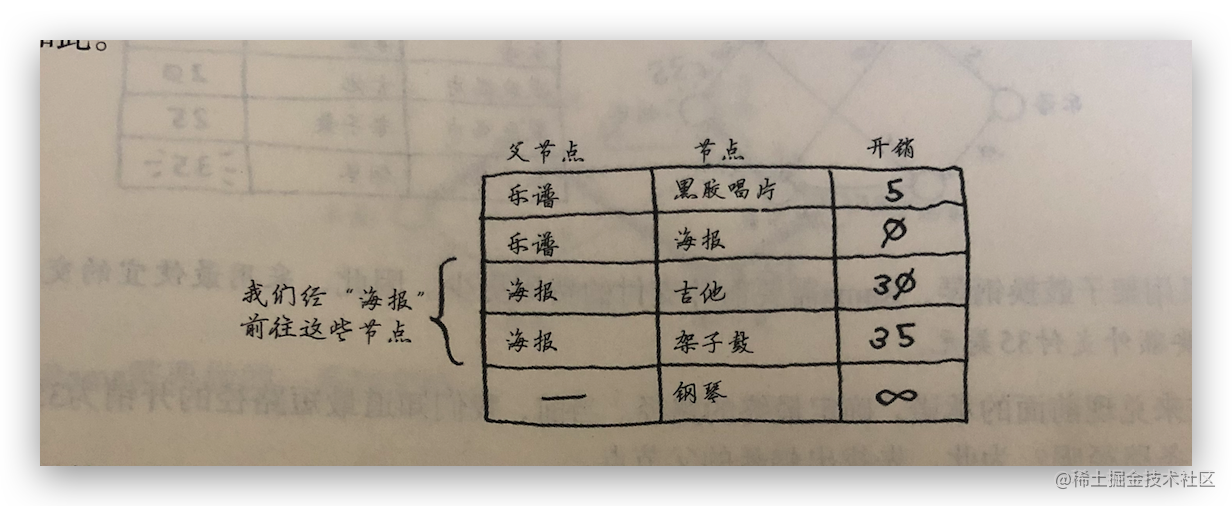 如此。
父节点 节点 开销
乐谱 黑胶唱片 5
乐谱 海报 0
海报 吉他 30
海报 架子鼓 35
— 钢琴 ∞
我们经“海报”
前往这些节点
@稀土掘金技术社区